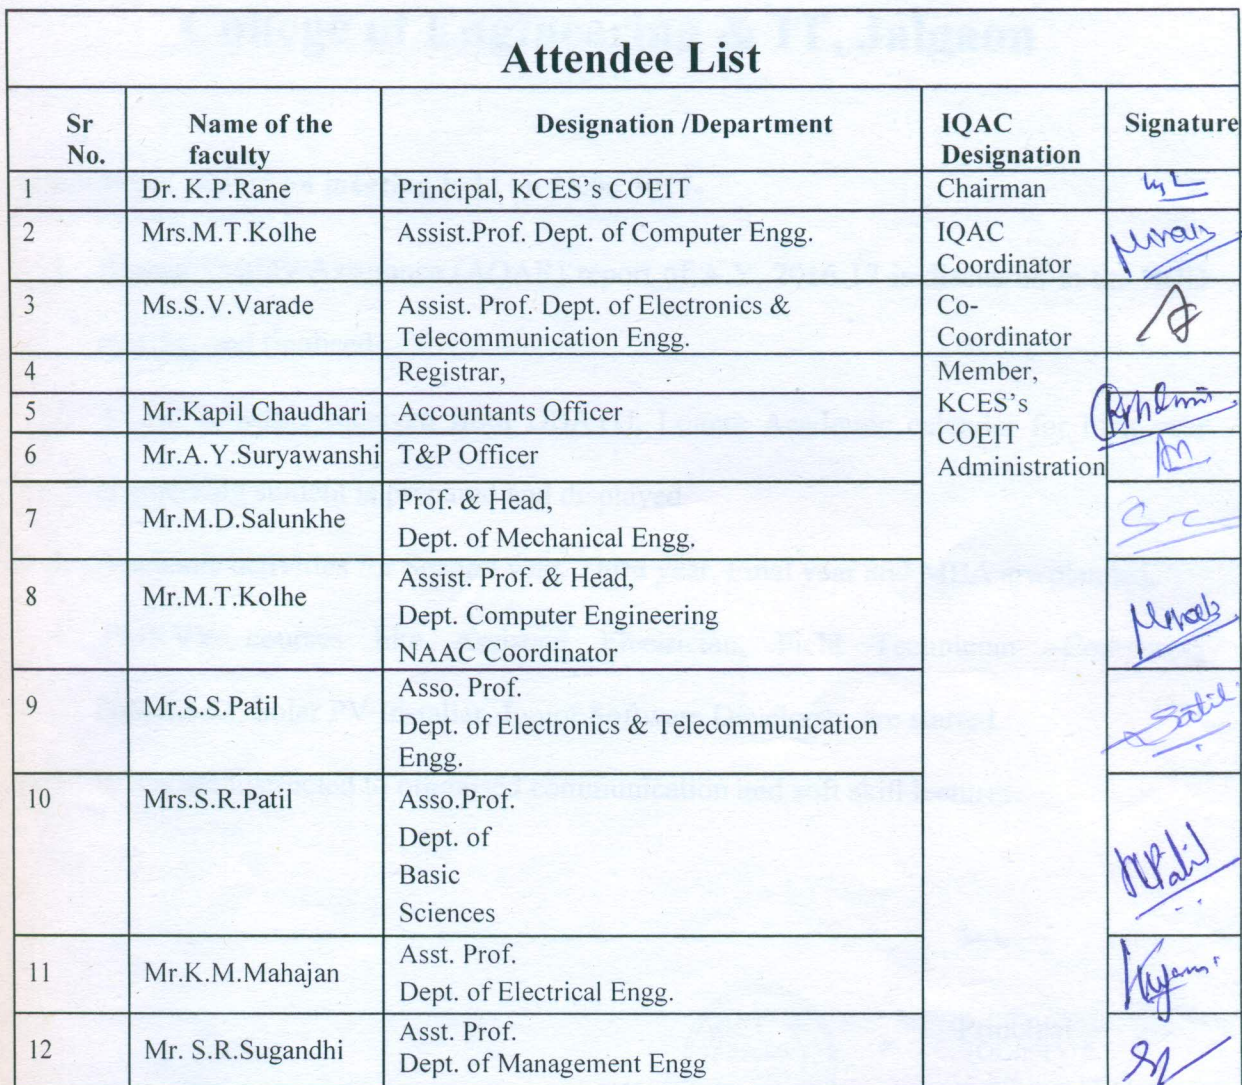 College of Engineering & IT, Jalgaon
Attendee List
Sr No. Name of the faculty Designation /Department IQAC Designation Signature
1 Dr. K.P.Rane Principal, KCES's COEIT Chairman
2 Mrs.M.T.Kolhe Assist.Prof. Dept. of Computer Engg. IQAC Coordinator
3 Ms.S.V.Varade Assist. Prof. Dept. of Electronics & Telecommunication Engg. Co-Coordinator
4 Registrar, Member, KCES's COEIT Administration
5 Mr.Kapil Chaudhari Accountants Officer
6 Mr.A.Y.Suryawanshi T&P Officer
7 Mr.M.D.Salunkhe Prof. & Head,
Dept. of Mechanical Engg.
8 Mr.M.T.Kolhe Assist. Prof. & Head,
Dept. Computer Engineering
NAAC Coordinator
9 Mr.S.S.Patil Asso. Prof.
Dept. of Electronics & Telecommunication
Engg.
10 Mrs.S.R.Patil Asso.Prof.
Dept. of
Basic
Sciences
11 Mr.K.M.Mahajan Asst. Prof.
Dept. of Electrical Engg.
12 Mr. S.R.Sugandhi Asst. Prof.
Dept. of Management Engg